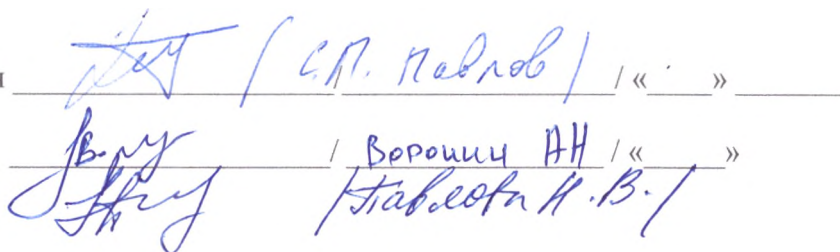 / С.П. Павлов / / « » 
/ Воронин АН / « »
/ Павлова Н.В. /